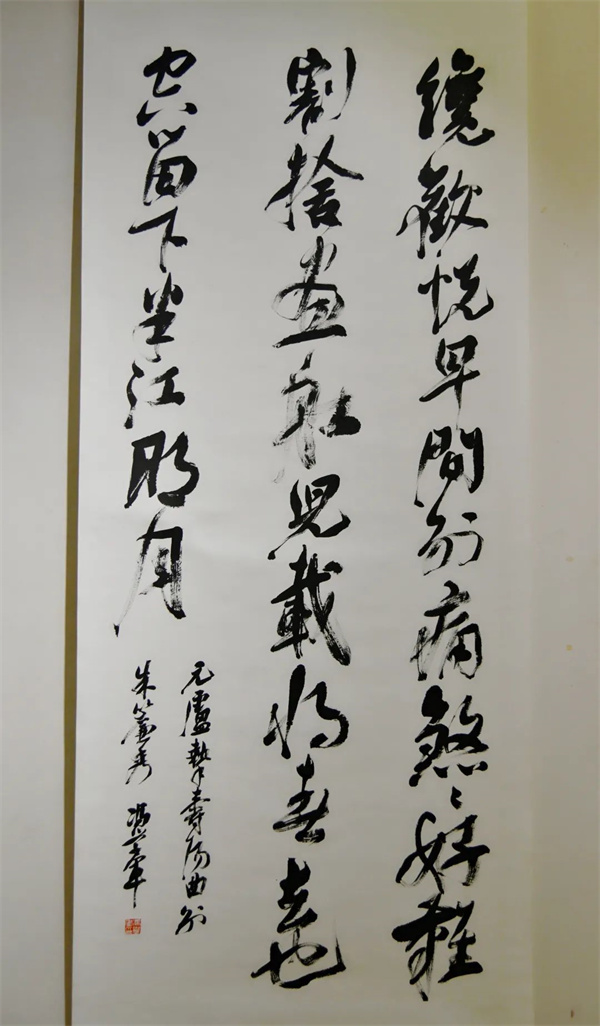 纔歡悅早間別痛煞〻好難
割捨畫船兒載將春去也
空留下半江明月
元盧摯壽陽曲別
朱簾秀 馮